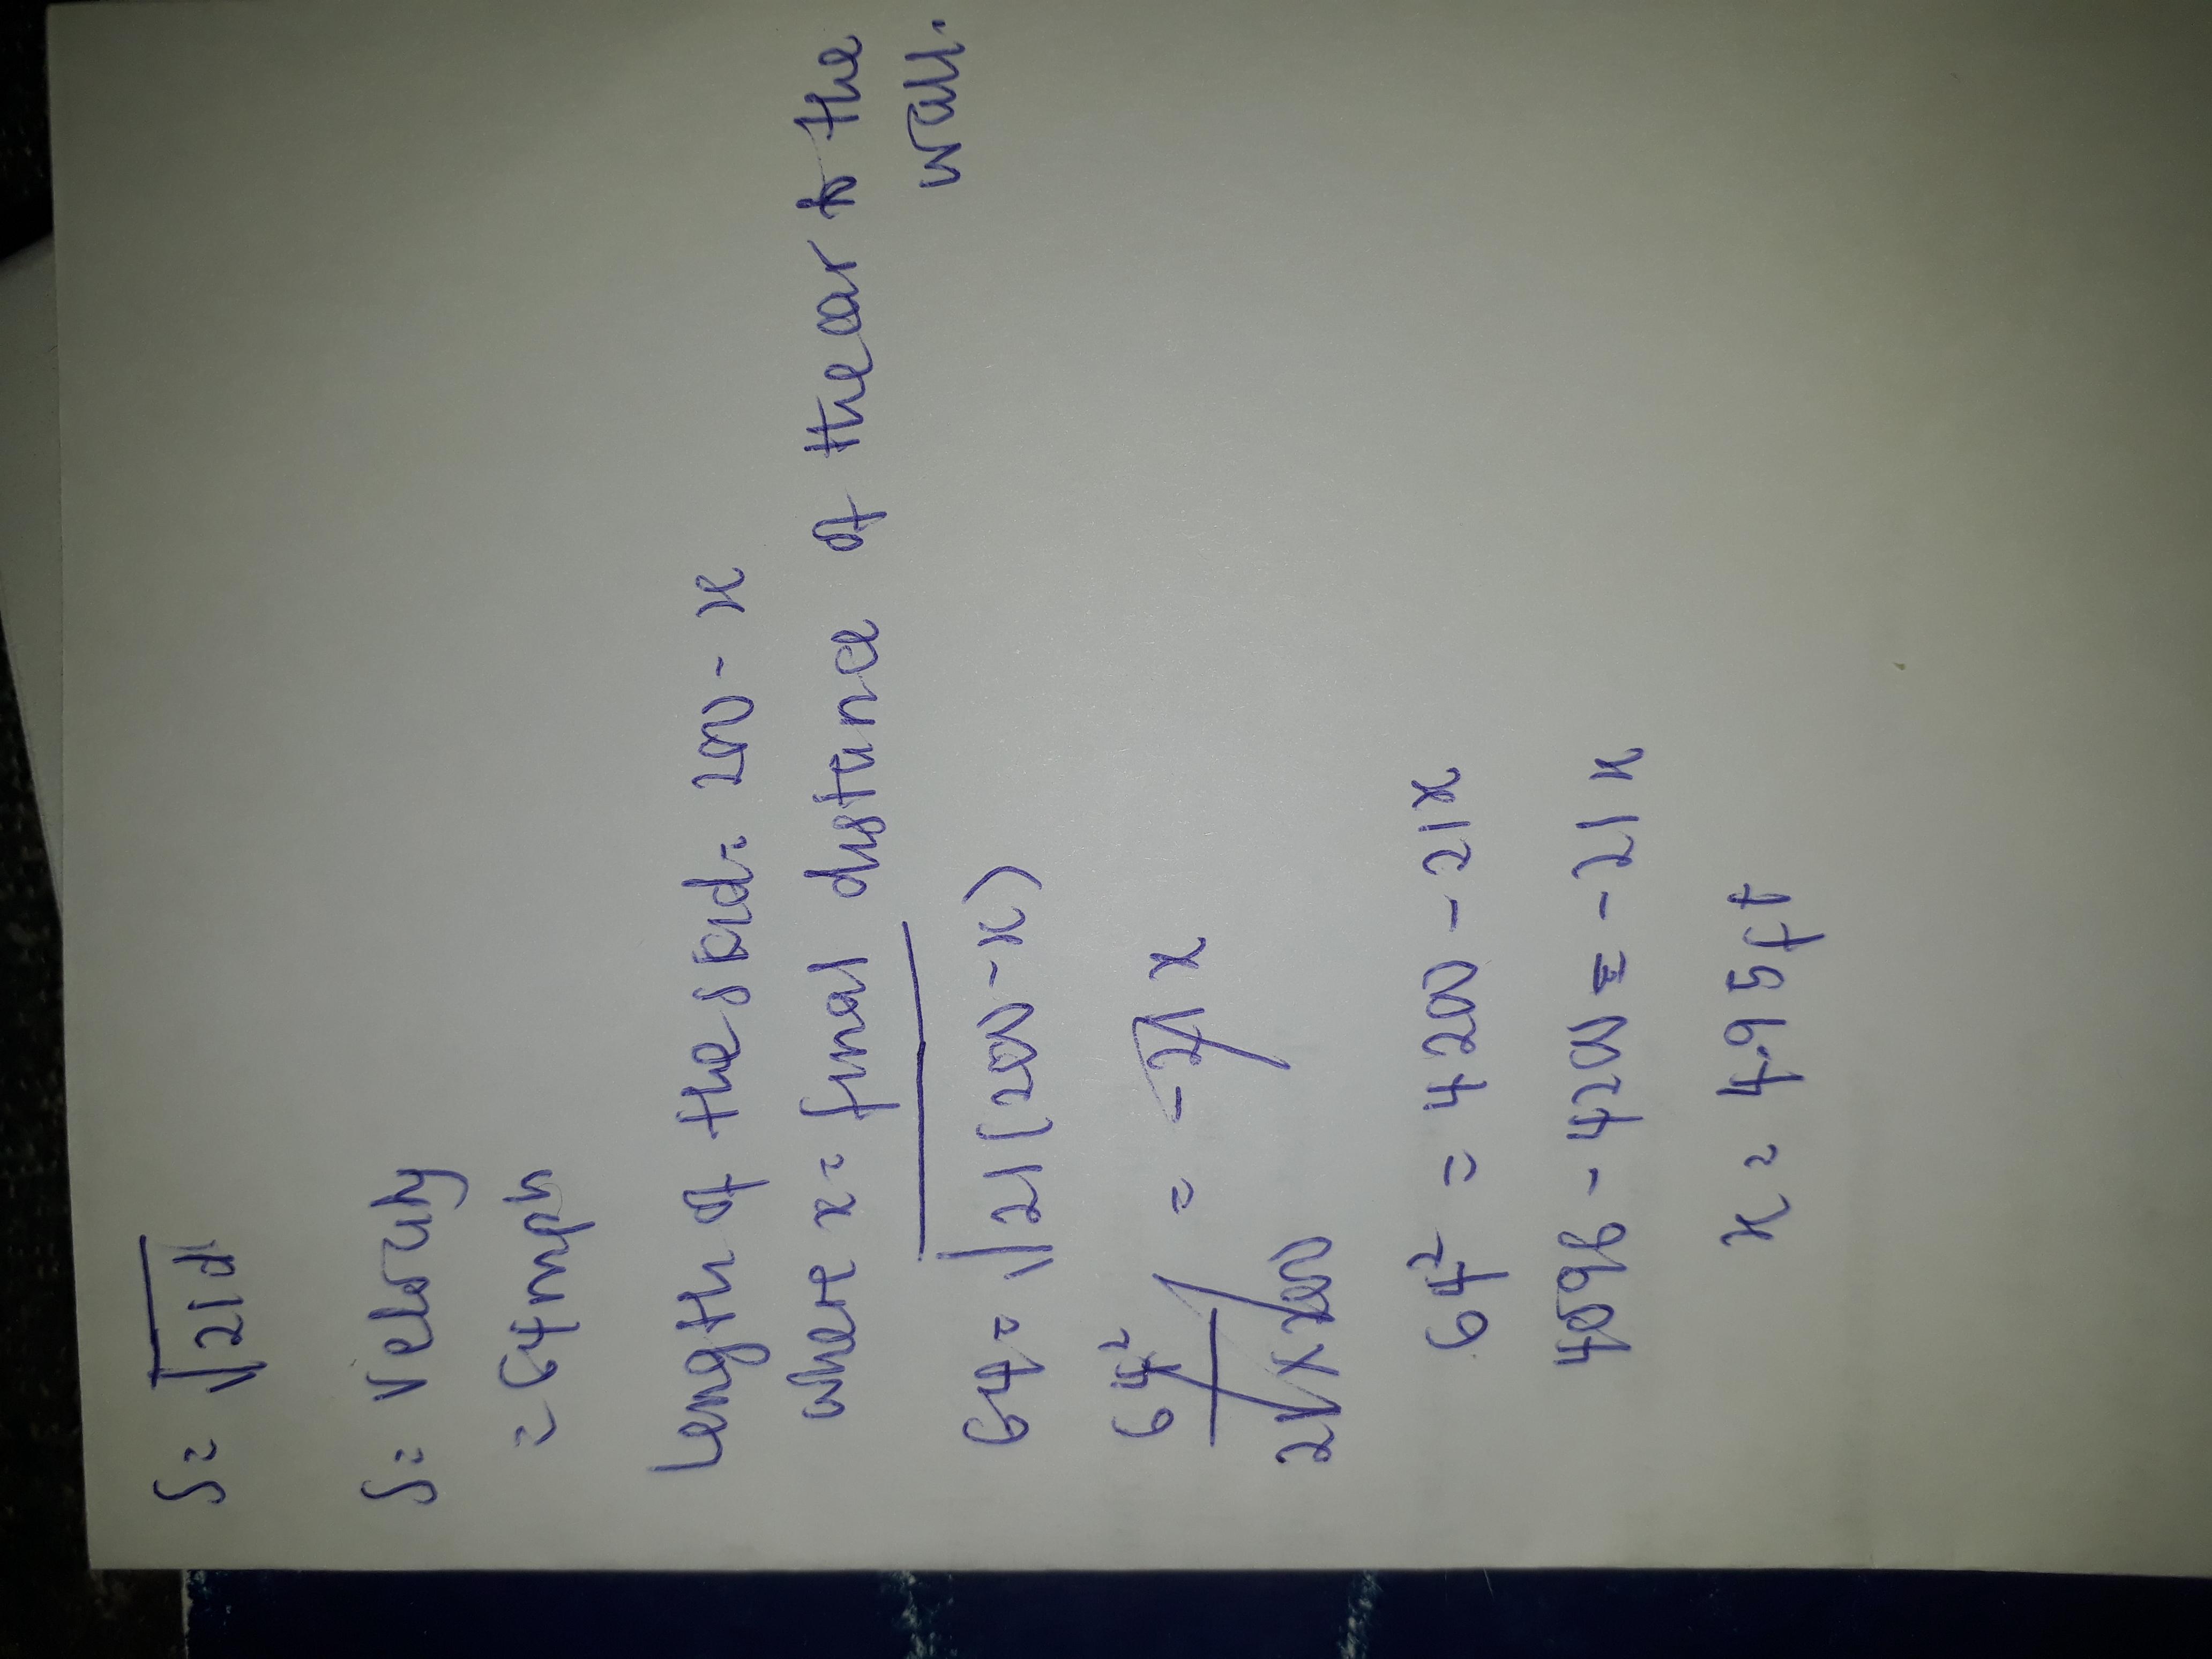 S = √21d
S = Velocity
= 64mph
Length of the skid = 200 - x
where x = final distance of the car to the
wall.
64 = √21(200-x)
64² = -21x
21x200
64² = 4200 - 21x
4096 - 4200 = -21x
x = 4.95ft